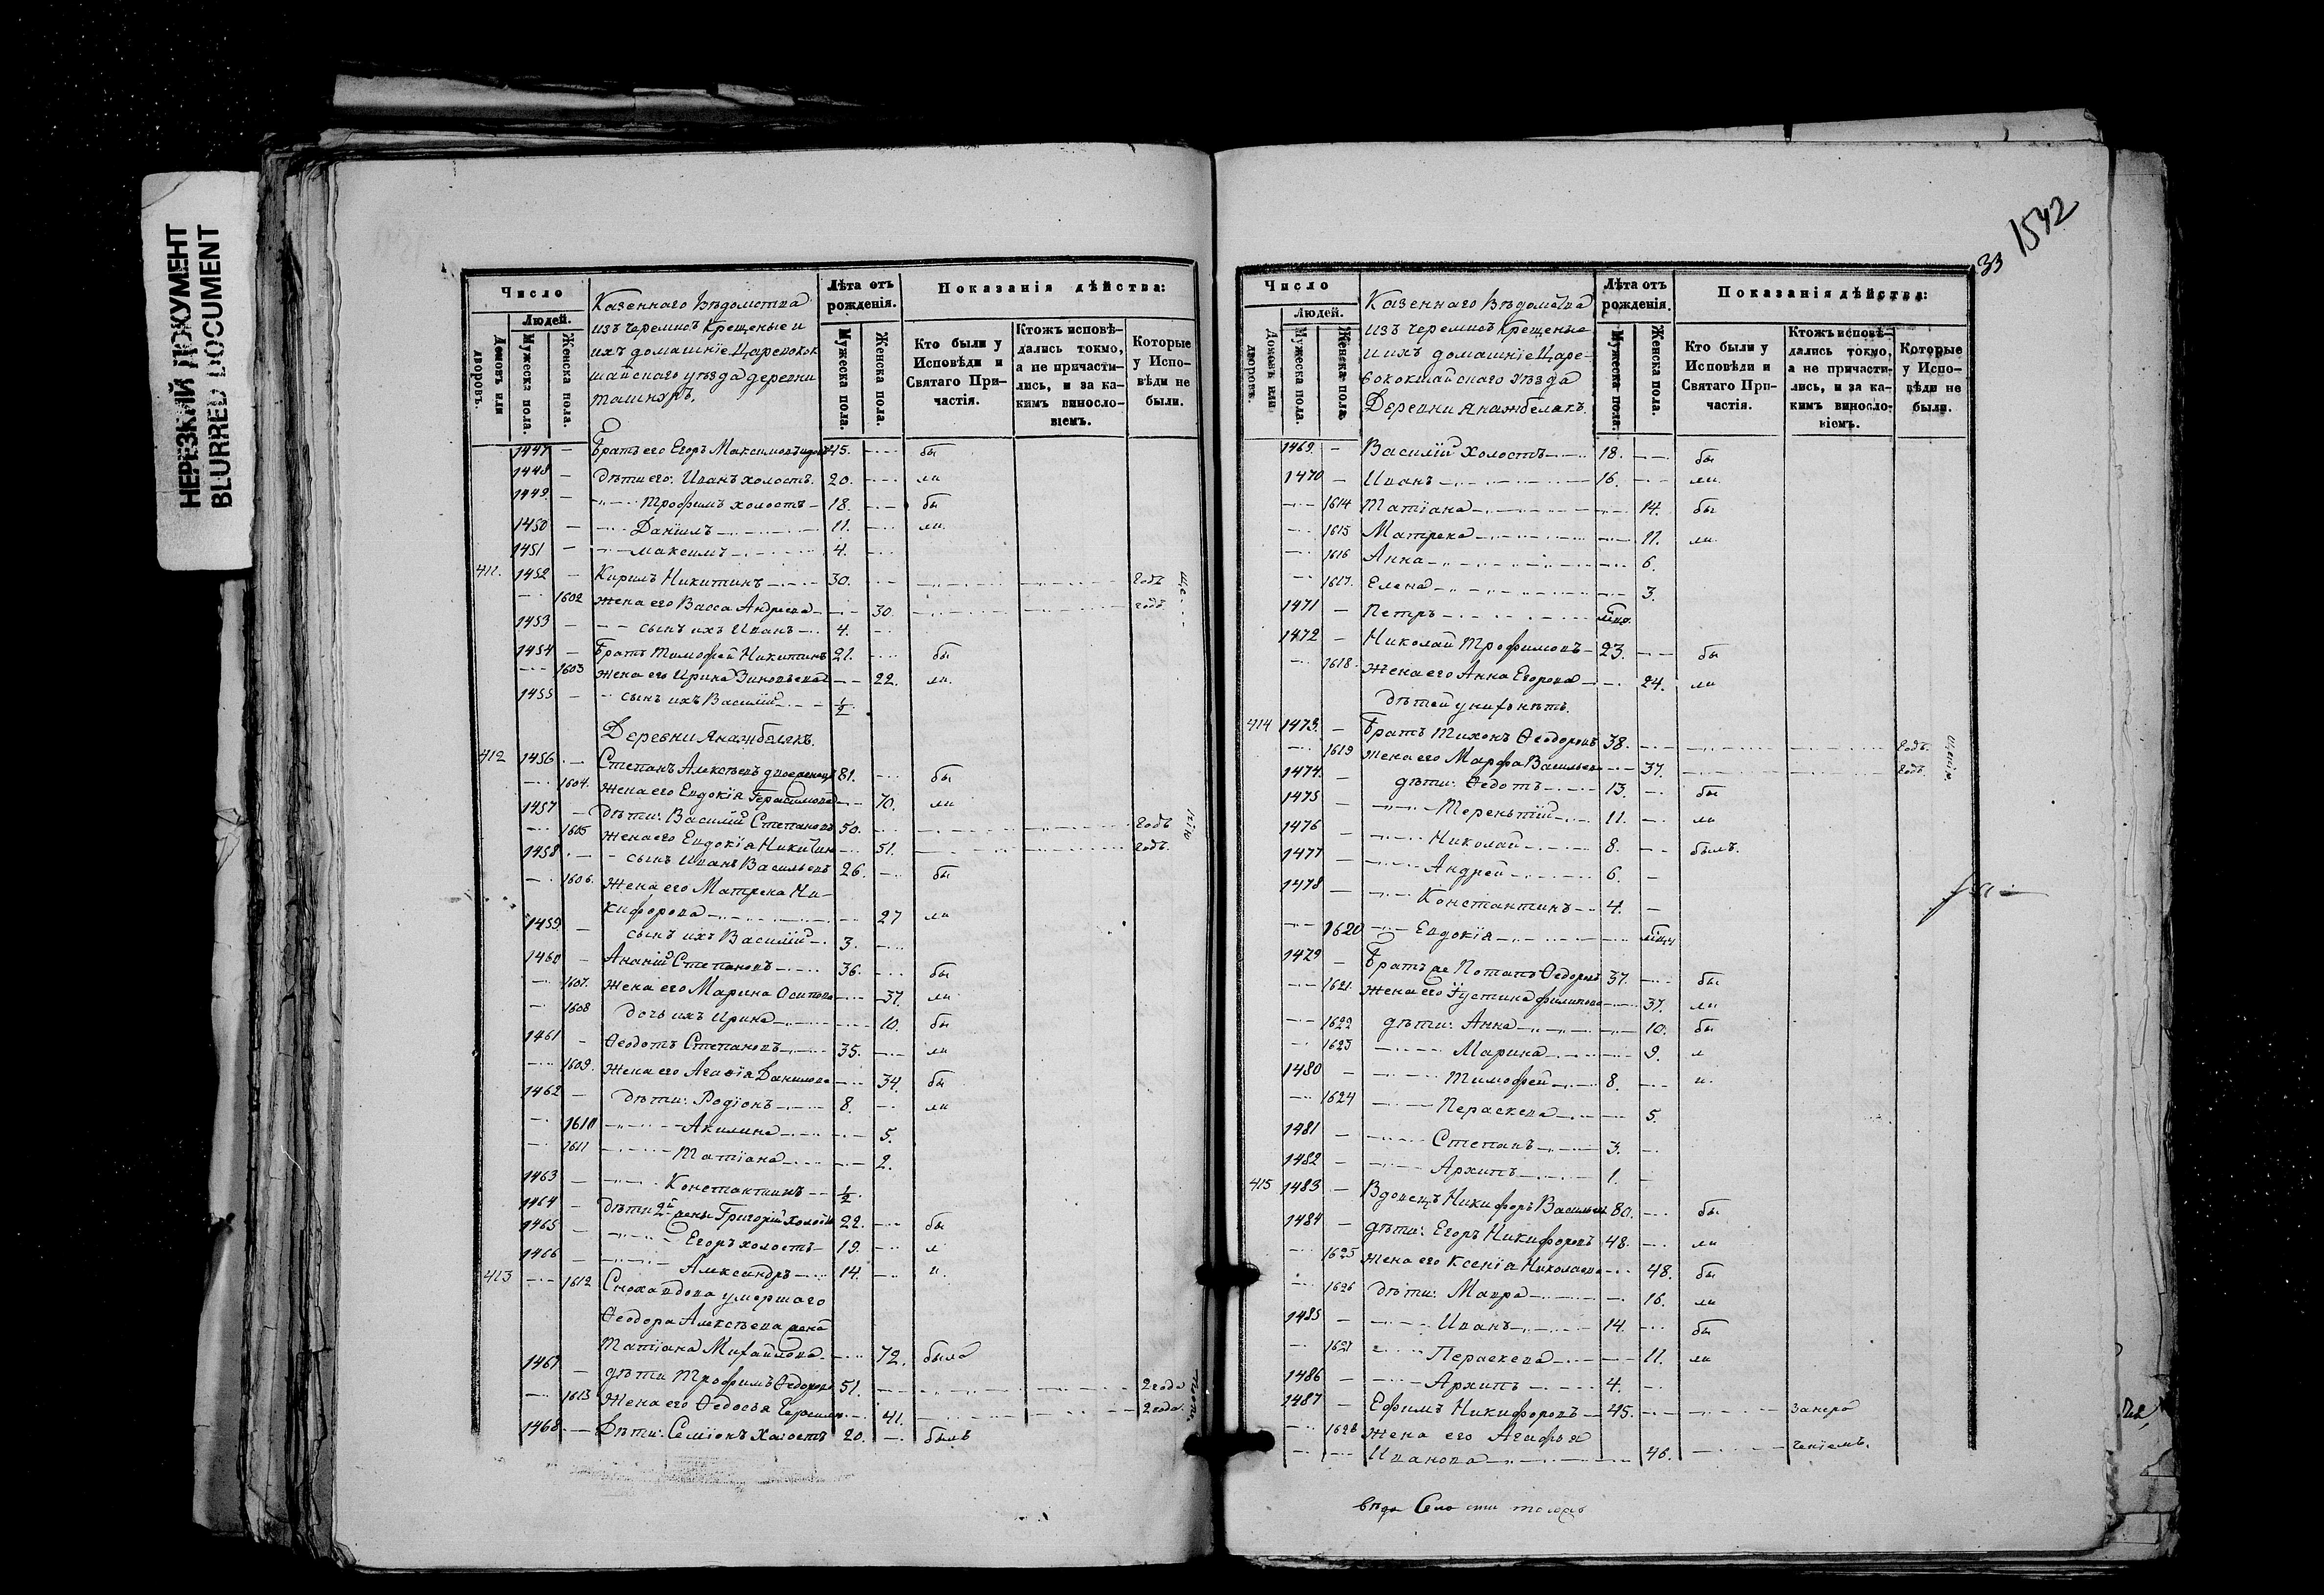 НЕРЕЗКИЙ ДОКУМЕНТ
BLURRED DOCUMENT
Число
Людей.
Домовъ или дворовъ.
Мужеска пола.
Женска пола.
Казеннаго Вѣдомства
изъ черемисъ Крещеные и
ихъ домашніе Царевокок
шайскаго уѣзда деревни
Лѣта отъ рожденія.
Мужеска пола.
Женска пола.
Показанія дѣйства:
Кто были у Исповѣди и Святаго Причастія.
Ктожъ исповѣдались токмо, а не причастились, и за какимъ винословіемъ.
Которые у Исповѣди не были.
1447 — Братъ его Егоръ Максимовъ 45. бы
1448 — дѣти его: Иванъ холостъ. 20. ли
1449 — Трофимъ холостъ 18. бы
1450 — Даніилъ 11. ли
1451 — Максимъ 4.
411. 1452 — Кирилъ Никитинъ 30. годъ
1602 жена его Васса Андреева 30. годъ
1453 — сынъ ихъ Иванъ 4.
1454 — Братъ Тимофей Никитинъ 21. бы
1603 жена его Ирина Зиновьева 22. ли
1455 — сынъ ихъ Василій ½
Деревни Янашбелякъ.
412 1456 — Степанъ Алексѣевъ 81. бы
1604. жена его Евдокія Герасимова 70. ли
1457 — дѣти: Василій Степановъ 50. годъ
1605 жена его Евдокія Никитин 51. годъ.
1458 — сынъ Иванъ Васильевъ 26. бы
1606. жена его Матрена Ни-
кифорова 27 ли
1459 — сынъ ихъ Василій 3.
1460 — Ананій Степановъ 36. бы
1607. жена его Марина Осипова 37. ли
1608 дочь ихъ Ирина 10. бы
1461 — Ѳеодотъ Степановъ 35. ли
1609. жена его Агафія Данилова 34. бы
1462 — дѣти: Родіонъ 8. ли
1610 Акилина 5.
1611 Матіана 2.
1463 — Константинъ ½.
1464 — дѣти 2й жены Григорій холостъ 22. бы
1465 — Егоръ холостъ 19. л
1466 — Александръ 14. и.
413 1612 Сноха вдова умершаго
Ѳеодора Алексѣева жена
Татіана Михайлова 72. была
1467 — дѣти Трофимъ Ѳедоровъ 51. 2 года
1613 жена его Ѳедосья 41. 2 года
1468. — Дѣти: Семіонъ Холостъ 20. былъ
33 1542
Число
Людей.
Домовъ или дворовъ.
Мужеска пола.
Женска пола.
Казеннаго Вѣдомства
изъ черемисъ Крещеные
и ихъ домашніе Царе-
вококшайскаго уѣзда
Деревни Янашбелякъ.
Лѣта отъ рожденія.
Мужеска пола.
Женска пола.
Показанія дѣйства:
Кто были у Исповѣди и Святаго Причастія.
Ктожъ исповѣдались токмо, а не причастились, и за какимъ винословіемъ.
Которые у Исповѣди не были.
1469. — Василій холостъ 18. бы
1470 — Иванъ 16. ли
1614 Татіана 14. бы
1615 Матрена 11. ли
1616 Анна 6.
1617. Елена 3.
1471 — Петръ
1472 — Николай Трофимовъ 23. бы
1618. Жена его Анна Егорова 24. ли
дѣтей у нихъ нѣтъ.
414 1473. — Братъ Тихонъ Ѳеодоровъ 38. годъ.
1619 жена его Марфа Васильева 37. годъ
1474. — дѣти: Ѳедотъ 13. бы
1475 — Терентій 11. ли
1476 — Николай 8. былъ.
1477 — Андрей 6.
1478 — Константинъ 4.
1620 Евдокія
1479 — Братъ же Потапъ Ѳедоровъ 37. бы
1621. жена его Устина Филипова 37. ли
1622 дѣти: Анна 10. бы
1623 Марина 9. л
1480 — Тимофей 8. и.
1624 Пераскева 5.
1481 — Степанъ 3.
1482 — Архипъ 1.
415 1483 — Вдовецъ Никифоръ Васильевъ 80. бы
1484 — дѣти: Егоръ Никифоровъ 48. ли
1625 жена его Ксенія Николаева 48. бы
1626 дѣти: Мавра 16. ли
1485 — Иванъ 14. бы
1627 Пераскева 11. ли
1486 — Архипъ 4.
1487 — Ефимъ Никифоровъ 45.
1628 жена его Агафья
Иванова 46.